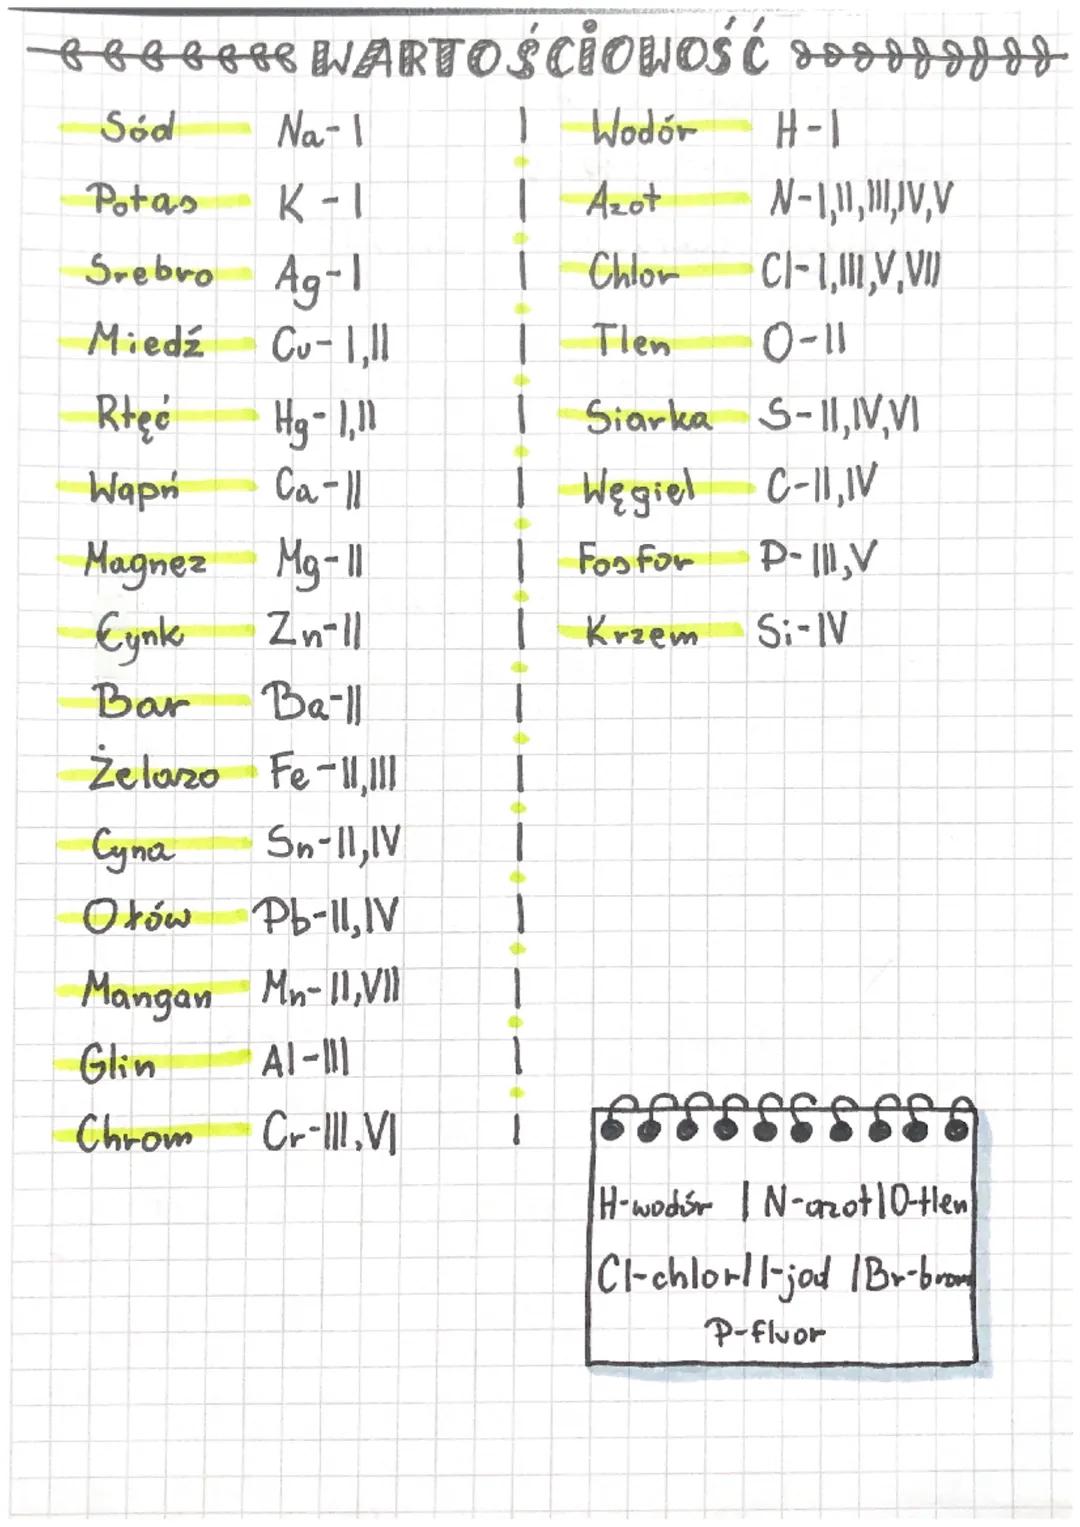 WARTOŚCIOWOŚĆ
Sód Na-I
Potas K-I
Srebro Ag-I
Miedź Cu-I,II
Rtęć Hg-I,II
Wapń Ca-II
Magnez Mg-II
Cynk Zn-II
Bar Ba-II
Żelazo Fe-II,III
Cyna Sn-II,IV
Ołów Pb-II,IV
Mangan Mn-II,VII
Glin Al-III
Chrom Cr-III,VI
Wodór H-I
Azot N-I,II,III,IV,V
Chlor Cl-I,III,V,VII
Tlen O-II
Siarka S-II,IV,VI
Węgiel C-II,IV
Fosfor P-III,V
Krzem Si-IV
H-wodór | N-azot | O-tlen
Cl-chlor | I-jod | Br-brom
P-fluor